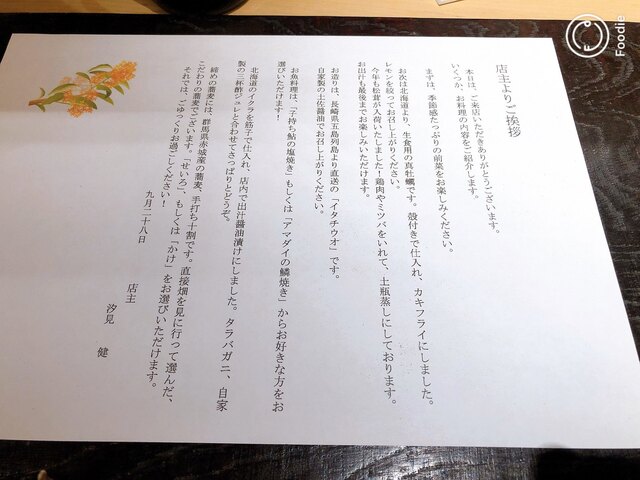 店主よりご挨拶
本日は、ご来店いただきありがとうございます。
いくつか、お料理の内容をご紹介します。
まずは、季節感たっぷりの前菜をお楽しみください。
お次は北海道より、生食用の真牡蠣です。殻付きで仕入れ、カキフライにしました。
レモンを絞ってお召し上がりください。
今年も松茸が入荷いたしました！鶏肉やミツバをいれて、土瓶蒸しにしております。
お出汁も最後までお楽しみいただけます。
お造りは、長崎県五島列島より直送の「イタチウオ」です。
自家製の土佐醤油でお召し上がりください。
お魚料理は、「子持ち鮎の塩焼き」もしくは「アマダイの鱗焼き」からお好きな方をお
選びいただけます！
北海道のイクラを筋子で仕入れ、店内で出汁醤油漬けにしました。タラバガニ、自家
製の三杯酢ジュレと合わせてさっぱりとどうぞ。
締めの蕎麦には、群馬県赤城産の蕎麦、手打ち十割です。直接畑を見に行って選んだ、
こだわりの蕎麦でございます。「せいろ」もしくは「かけ」をお選びいただけます。
それでは、ごゆっくりお過ごしください！
九月二十八日
店主
汐見 健
Foodie